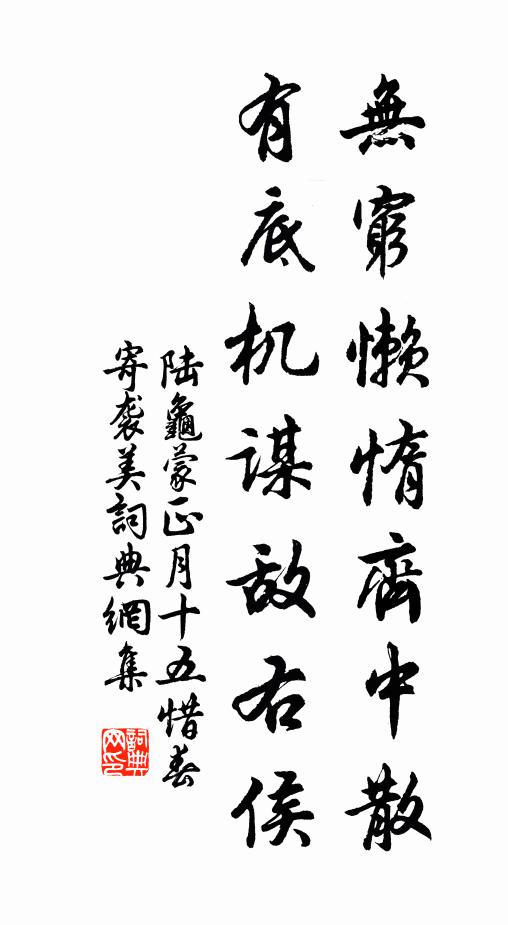 無窮懶惰齊中散
有底机謀敌右侯
陆龜蒙正月十五惜春
寄袭美詞典網集
詞典网印